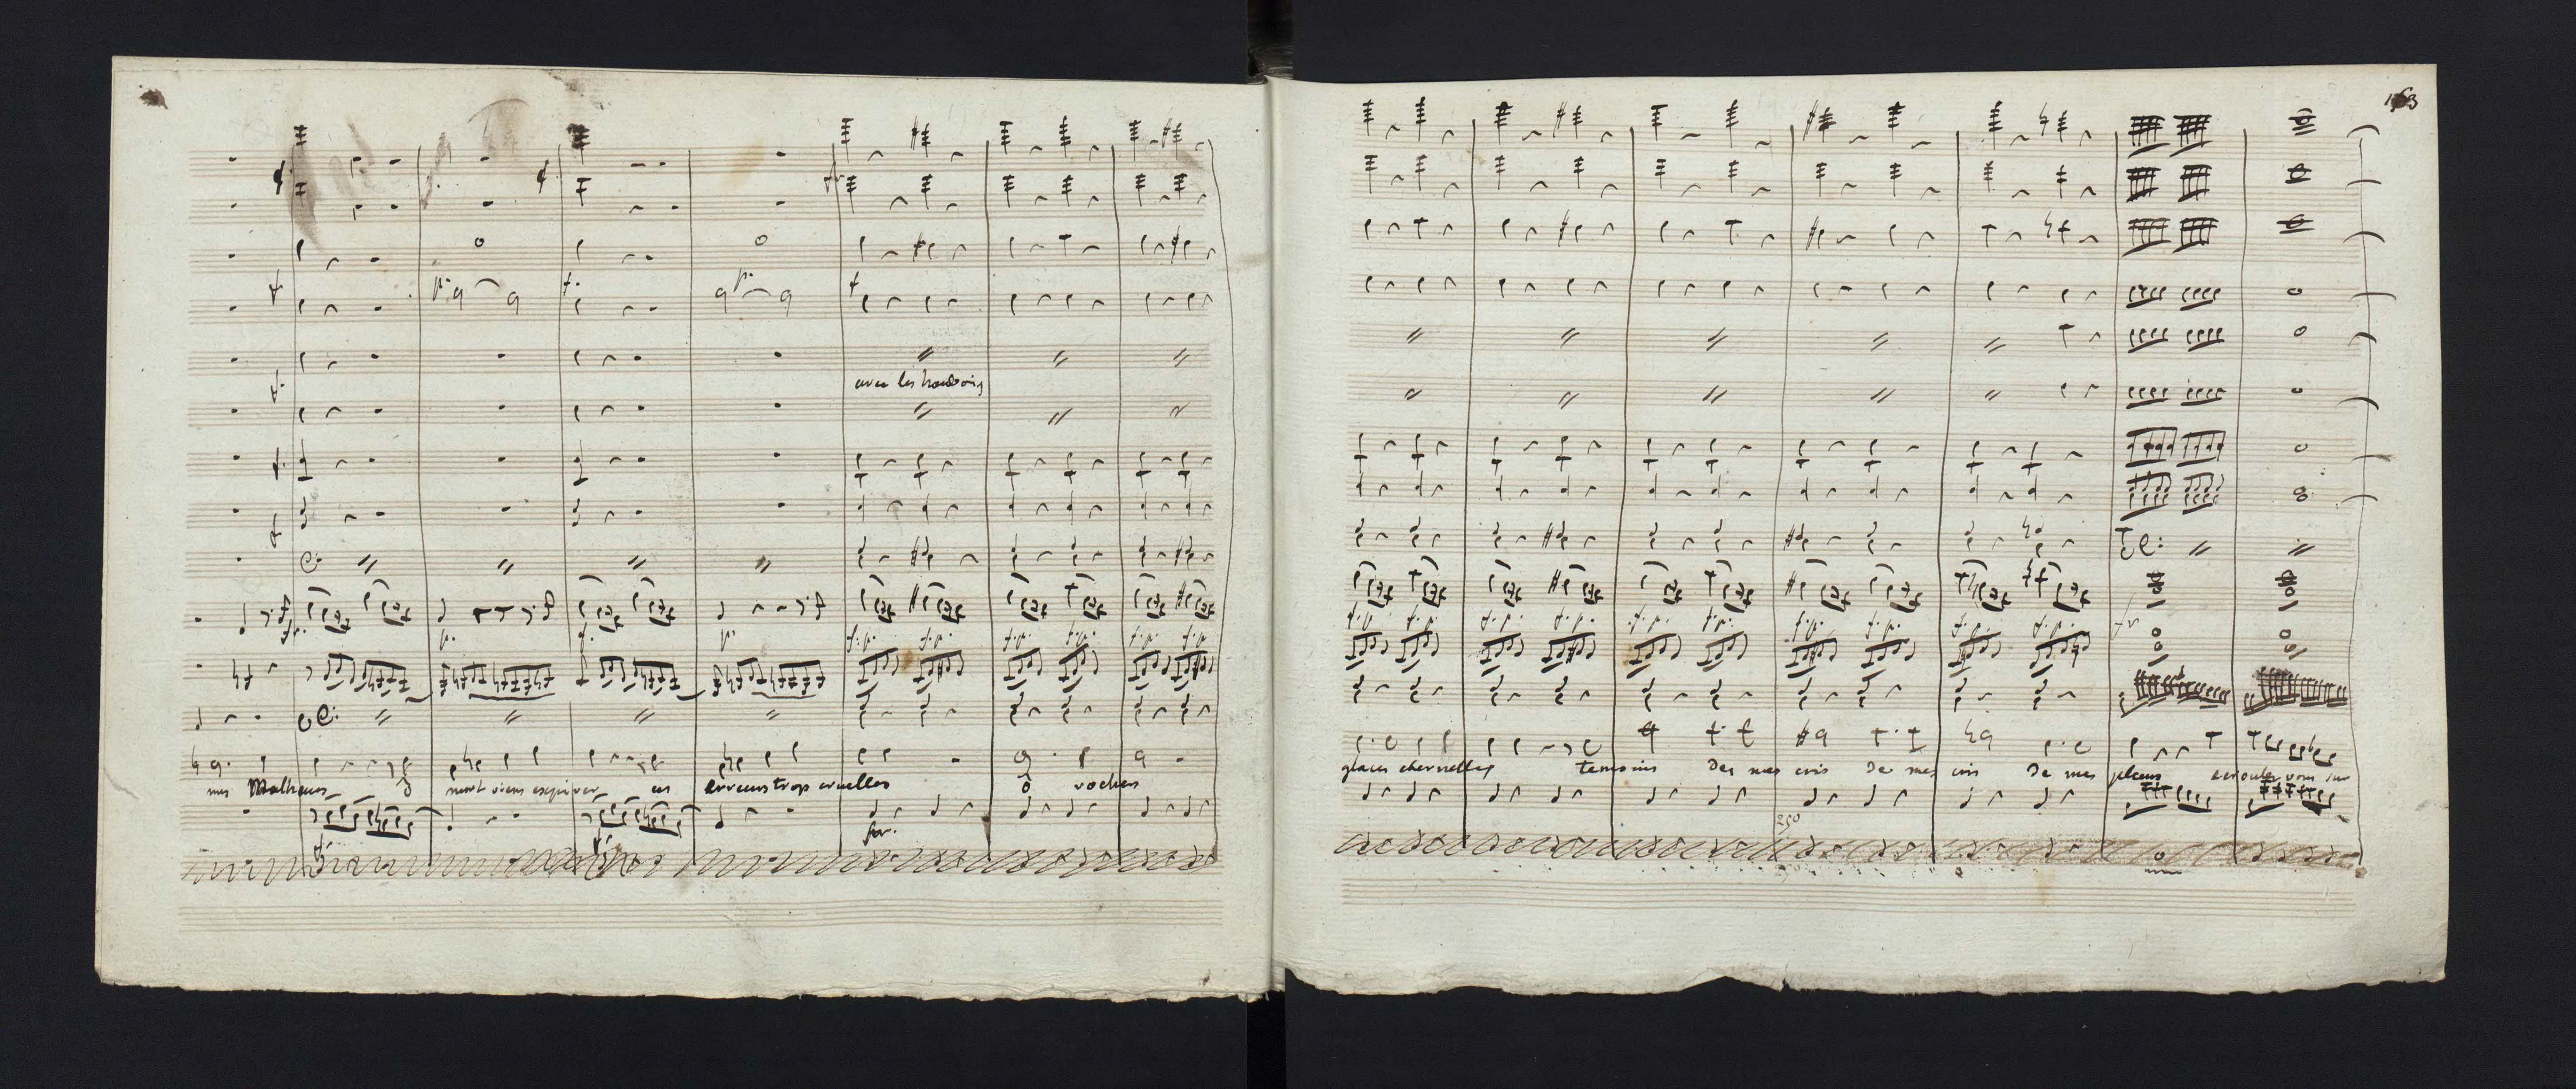 163
avec les hautbois
mes Malheurs ô mort viens expier ces erreurs trop cruelles ô rochers
glaces eternelles temoins de mes cris de mes cris de mes pleurs ecroulez vous sur
for.
250